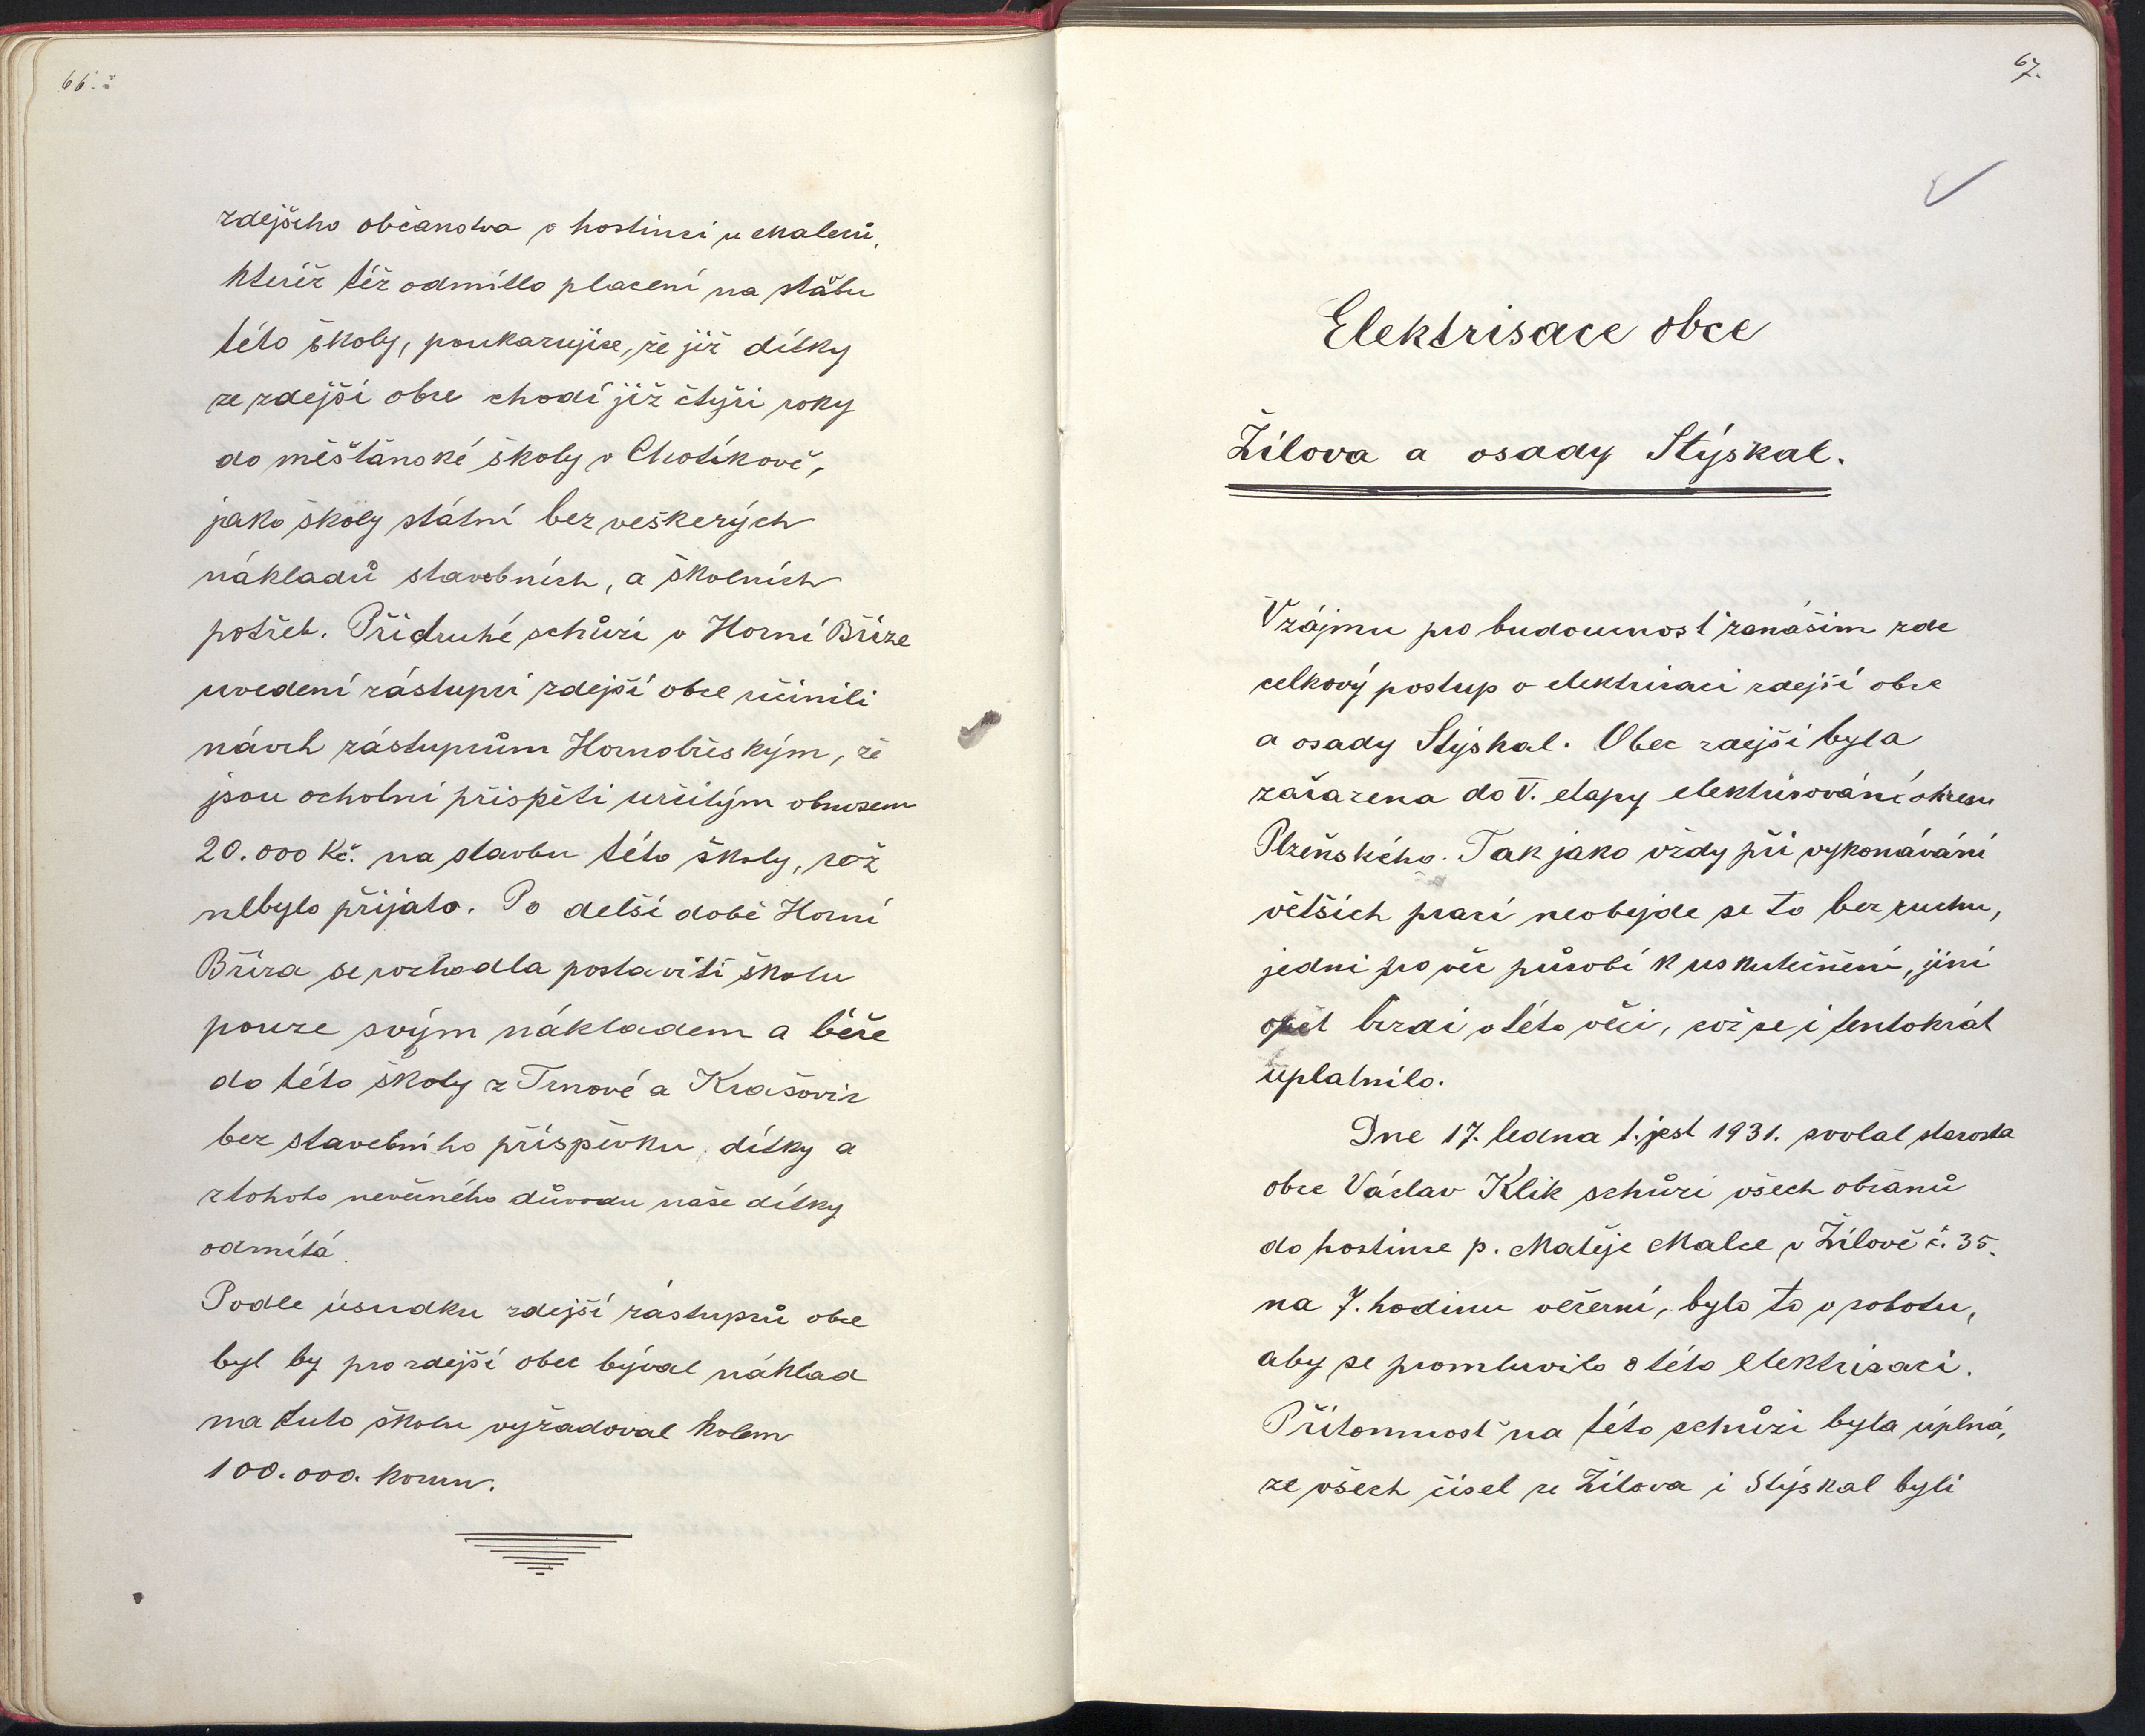 66.
zdejšího občanstva v hostinci u Malců,
kteříž též odmítlo placení na stábu
této školy, poukazujíce, že již dítky
ze zdejší obce chodí již čtyři roky
do měšťánské školy v Chotíkově,
jako školy státní bez veškerých
nákladů stavebních, a školních
potřeb. Při druhé schůzi v Horní Bříze
uvedení zástupci zdejší obce učinili
návrh zástupcům Hornobříským, že
jsou ochotni přispěti určitým obnosem
20.000 Kč. na stavbu této školy, což
nebylo přijato. Po delší době Horní
Bříza se rozhodla postaviti školu
pouze svým nákladem a béře
do této školy z Trnové a Krašovic
bez stavebního příspěvku dítky a
z tohoto nevěcného důvodu naše dítky
odmítá.
Podle úsudku zdejší zástupců obce
byl by pro zdejší obec býval náklad
na tuto školu vyžadoval kolem
100.000. korun.
67.
Elektrisace obce
Žilova a osady Stýskal.
V zájmu pro budoucnost zanáším zde
celkový postup o elektrisaci zdejší obce
a osady Stýskal. Obec zdejší byla
zařazena do V. etapy elektrisování okresu
Plzeňského. Tak jako vždy při vykonávání
větších prací neobejde se to bez ruchu,
jedni pro věc působí k uskutečnění, jiní
opět brzdí v této věci, což se i tentokrát
uplatnilo.
Dne 17. ledna t. jest 1931. svolal starosta
obce Václav Klik schůzi všech občanů
do hostince p. Matěje Malce v Žilově č. 35.
na 7. hodinu večerní, bylo to v sobotu,
aby se promluvilo o této elektrisaci.
Přítomnost na této schůzi byla úplná,
ze všech čísel ze Žilova i Stýskal byli